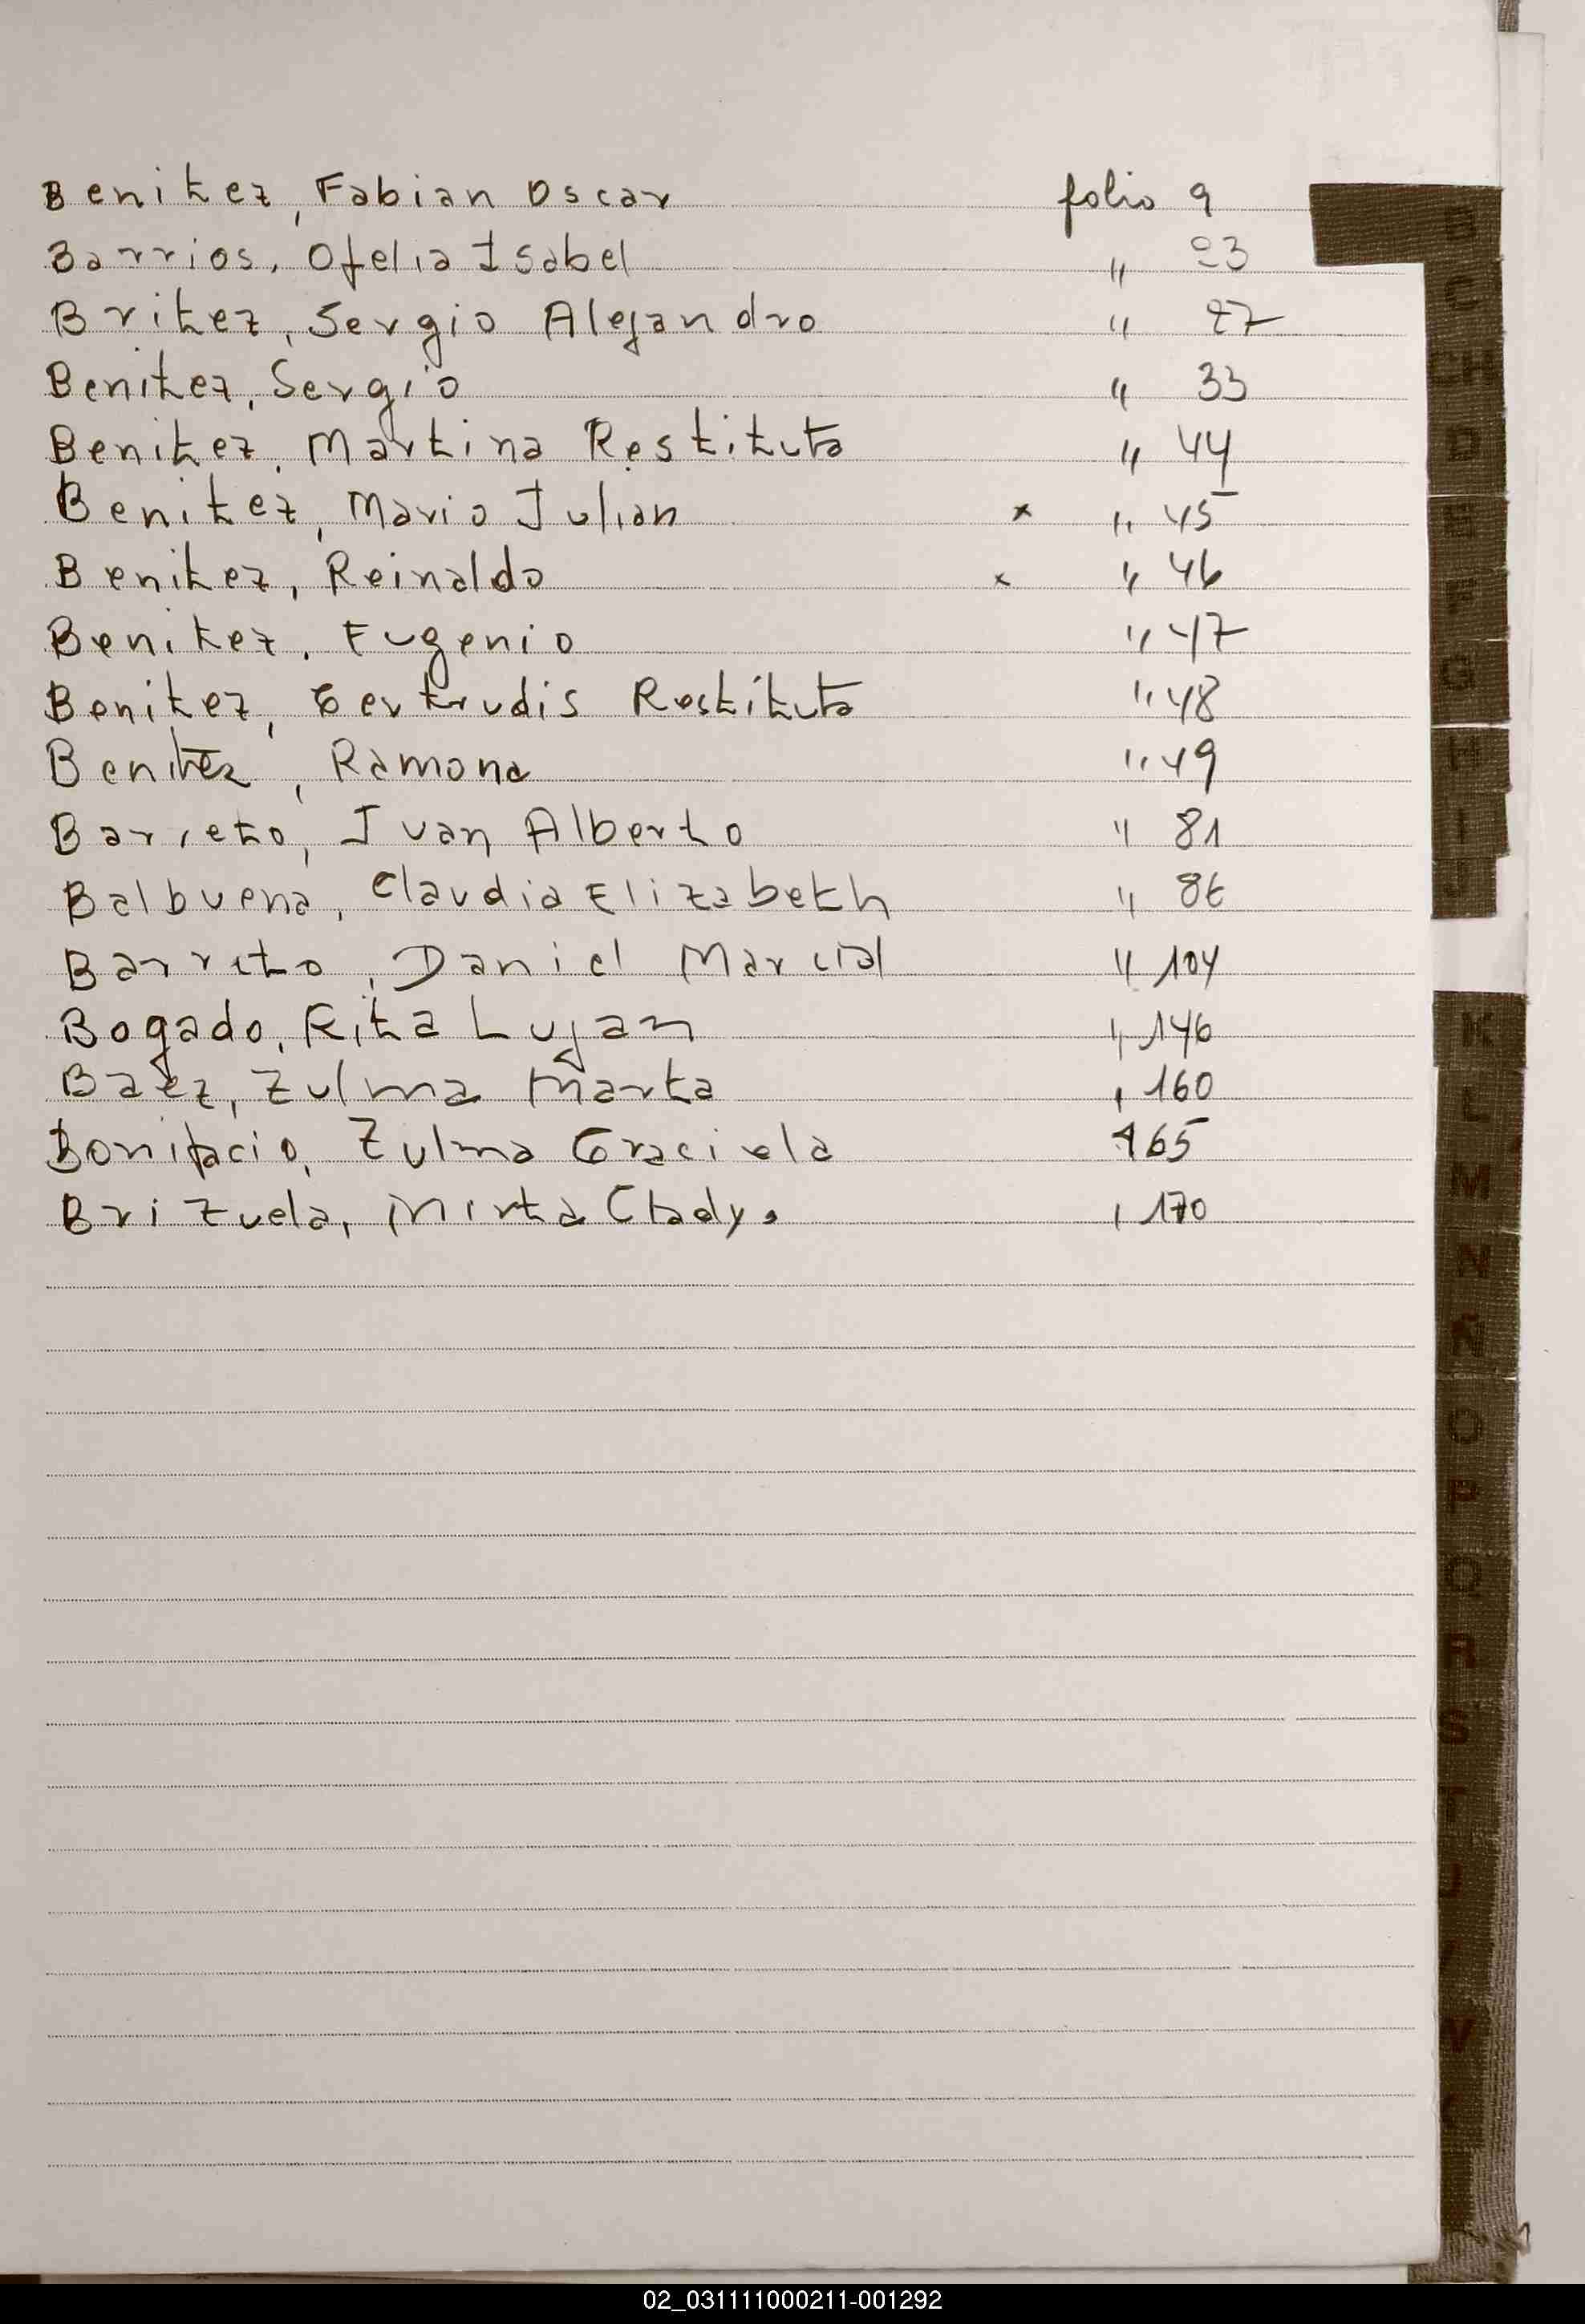 Benitez, Fabian Oscar folio 9
Barrios, Ofelia Isabel " 23
Britez, Sergio Alejandro " 27
Benitez, Sergio " 33
Benitez, Martina Restituta " 44
Benitez, Mario Julian x " 45
Benitez, Reinaldo x " 46
Benitez, Eugenio " 47
Benitez, Gertrudis Restituta " 48
Benitez, Ramona " 49
Barreto, Juan Alberto " 81
Balbuena, Claudia Elizabeth " 86
Barreto, Daniel Marcial " 104
Bogado, Rita Lujan " 146
Baez, Zulma Marta " 160
Bonifacio, Zulma Graciela 165
Brizuela, Mirta Glady. " 170
B
C
CH
D
E
F
G
H
I
J
K
L
M
N
Ñ
O
P
Q
R
S
T
U
V
02_031111000211-001292